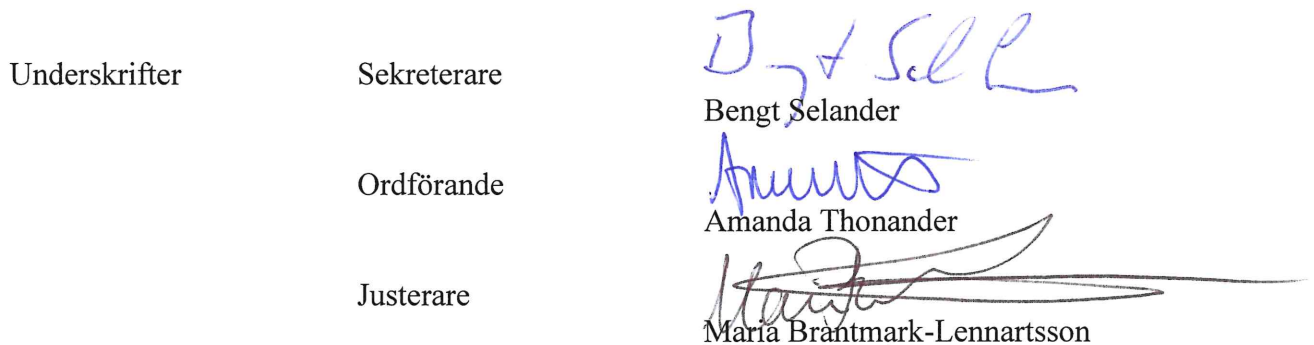 Underskrifter Sekreterare Bengt Selander
Ordförande
Amanda Thonander
Justerare
Maria Brantmark-Lennartsson